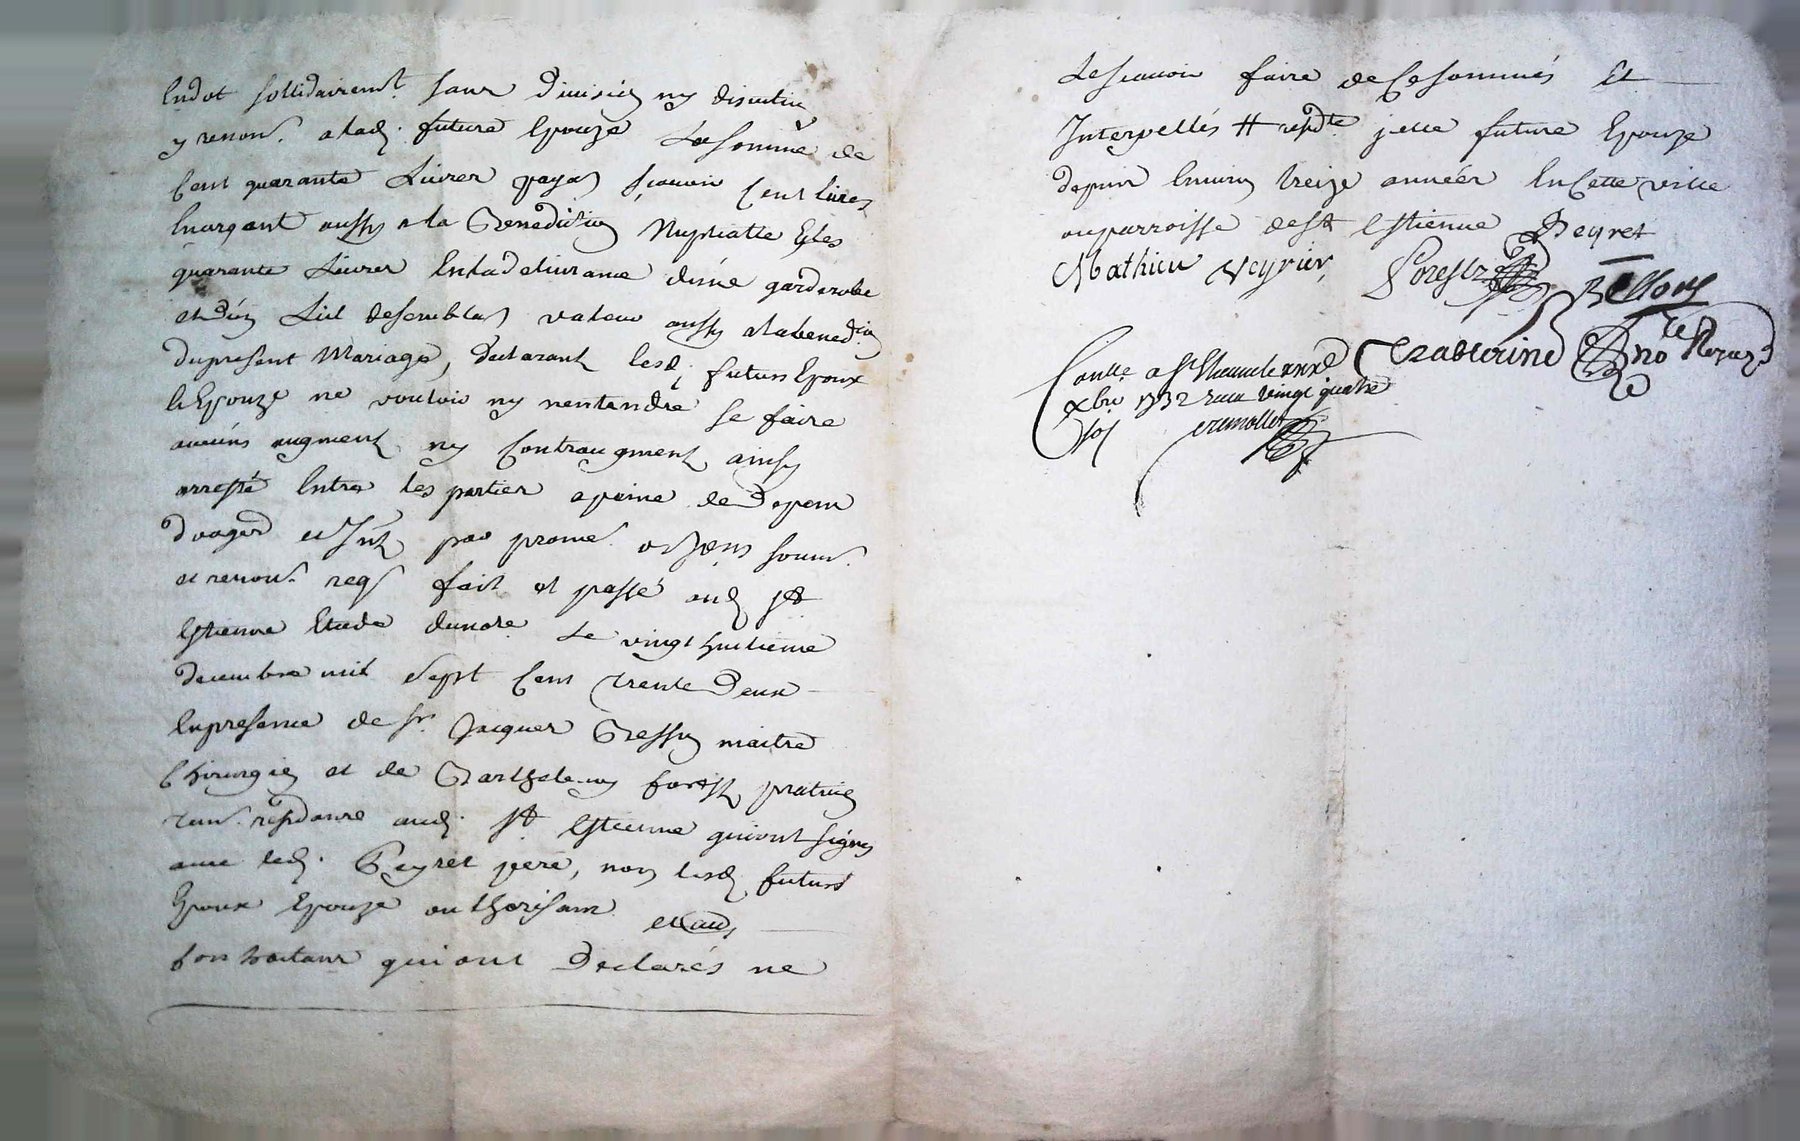 Endot sollidairemt. sans division ny discution
y renon. a lad. future Epouze La somme de
Cent quarante Livres payab scavoir Cent livres
En argent aussy a la Benediction Nuptialle Et les
quarante Livres En la delivrance d'une garderobe
et d'un Lit de semblab valeur aussy a la bened.on
du present Mariage, declarant lesd. futurs Epoux
Et Epouze ne vouloir ny n'entendre se faire
aucuns augment ny Contraugment ainsy
arresté Entre les parties a peine de Depens
et renon. reqs fait et passé aud. St
Estienne Etude du nore. Le vingt huitieme
decembre mil sept Cent trente Deux
En presence de Sr. Jacques Besson maitre
Chirurgien et de Barthelemy forest praticien
aud. St Estienne qui ont signés
avec led. Peyret pere, non lesd. futurs
Epoux Epouze authorisans et aud.
qui ont Declarés ne
Le scavoir faire de Ce sommés Et
Interpellés # residte. icelle future Epouze
depuis Environ treize années En Cette ville
ou parroisse de St Estienne Peyret
Mathieu Veyrier, Forest
Besson
Conllé a St Etienne le
xbre 1732 Reçu vingt quatre
sols